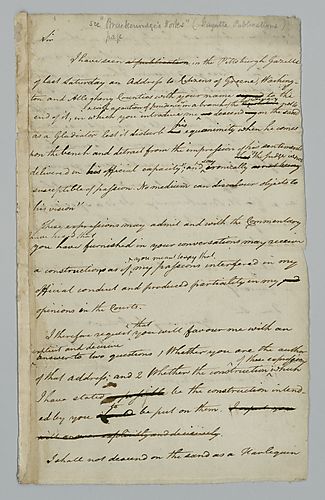 see Brackenridge's Works" (Gazette Publications)
page
Sir
I have seen a publication in the Pittsburgh Gazette
of last Saturday an Address to Citizens of Greene, Washing-
ton and Allegheny Counties with your name to the
end of it, in which you introduce me as descend on the sand
as a Gladiator lest it disturb his equanimity when he comes
upon the bench and detract from the impression of his sentiments
delivered in his official capacity", and say ironically "the Judge is
susceptible of passion. No medium can discolour objects to
his vision"
These expressions may admit and with the Commentary
you have furnished in your conversations may receive
a construction as if you mean to say that my passions interfered in my
official conduct and produced partiality in my
opinions in the Courts.
I therefore request that you will favour me with an
explicit and decisive
answer to two questions, 1 Whether you are the author
of that Address, and 2 Whether the construction of these expressions which
I have stated be the construction intend
ed by you to be put on them. I expect you
will answer explicitly and decisively.
I shall not descend on the sand as a Harlequin